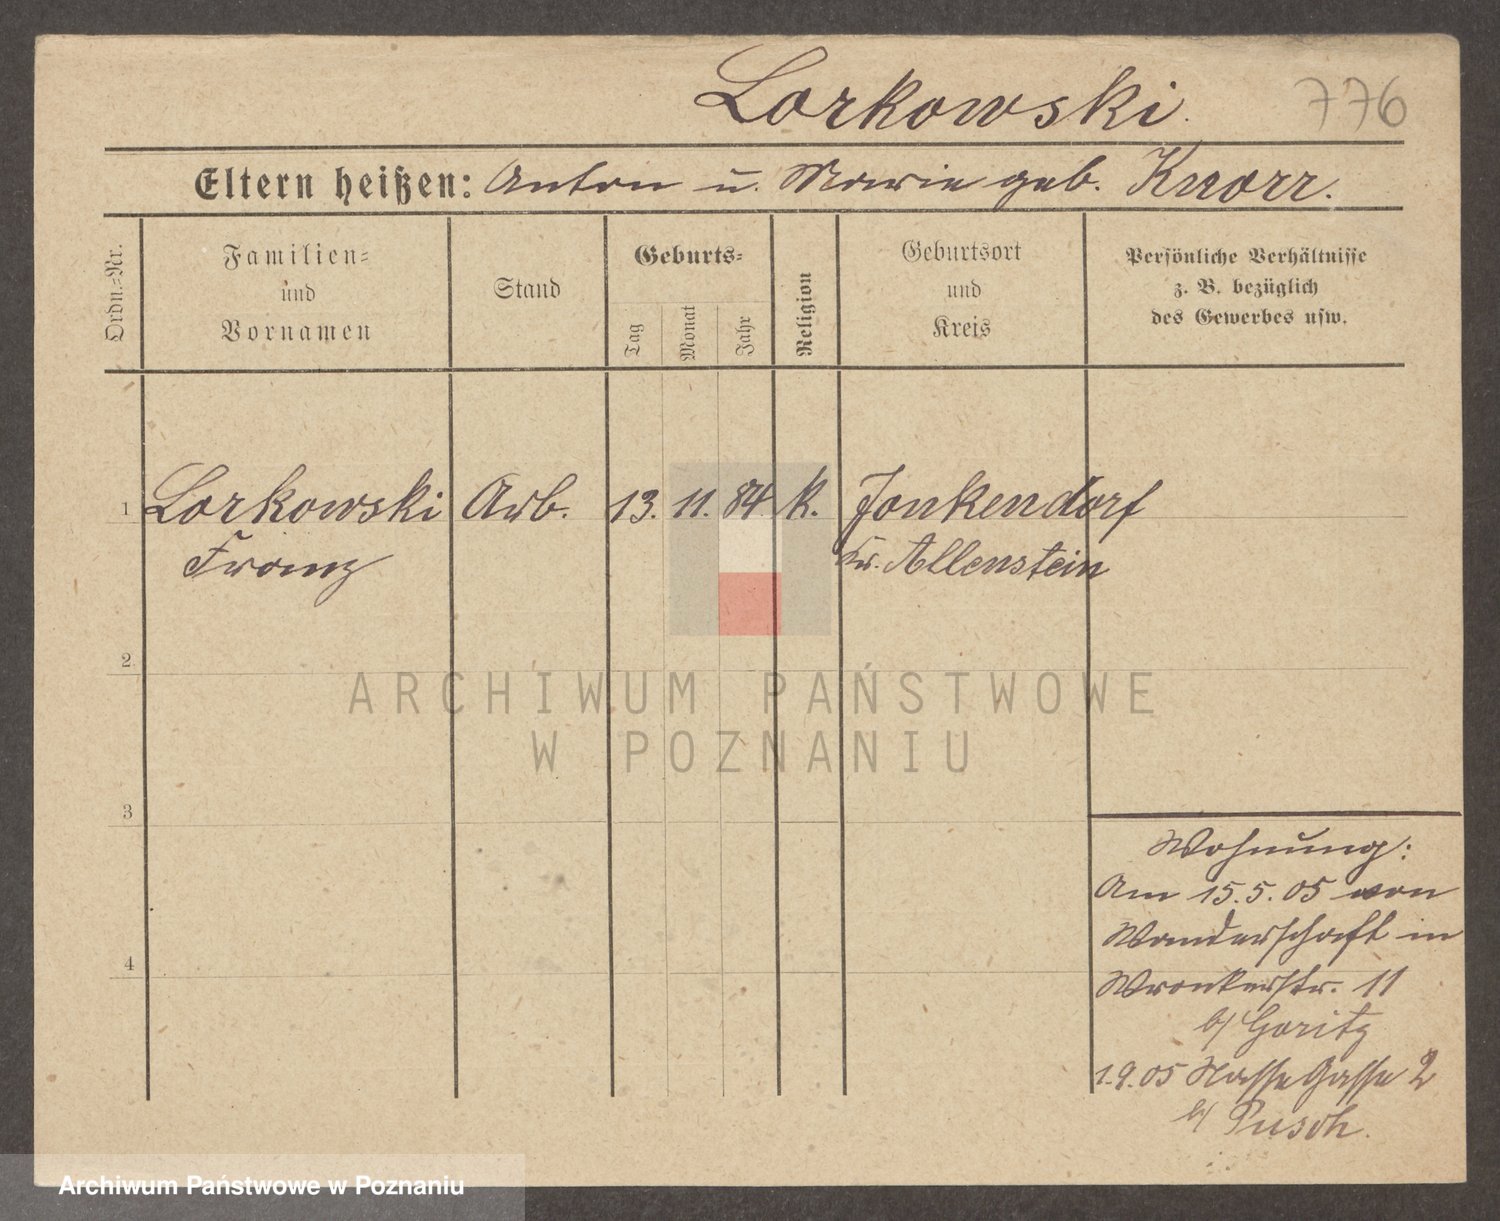 Lorkowski.
776
Eltern heißen: Anton u. Marie geb. Knorr.
Ordn.-Nr.
Familien-
und
Vornamen
Stand
Geburts-
Tag
Monat
Jahr
Religion
Geburtsort
und
Kreis
Persönliche Verhältnisse
z. B. bezüglich
des Gewerbes usw.
1 Lorkowski Arb. 13. 11. 84 k. Jonkendorf
Franz Kr. Allenstein
2
ARCHIWUM PAŃSTWOWE
W POZNANIU
3
Wohnung:
Am 15.5.05 von
Wanderschaft in
4
Wronkerstr. 11
b/ Goritz
1.9.05 Nasse Gasse 2
b/ Pusch.
Archiwum Państwowe w Poznaniu